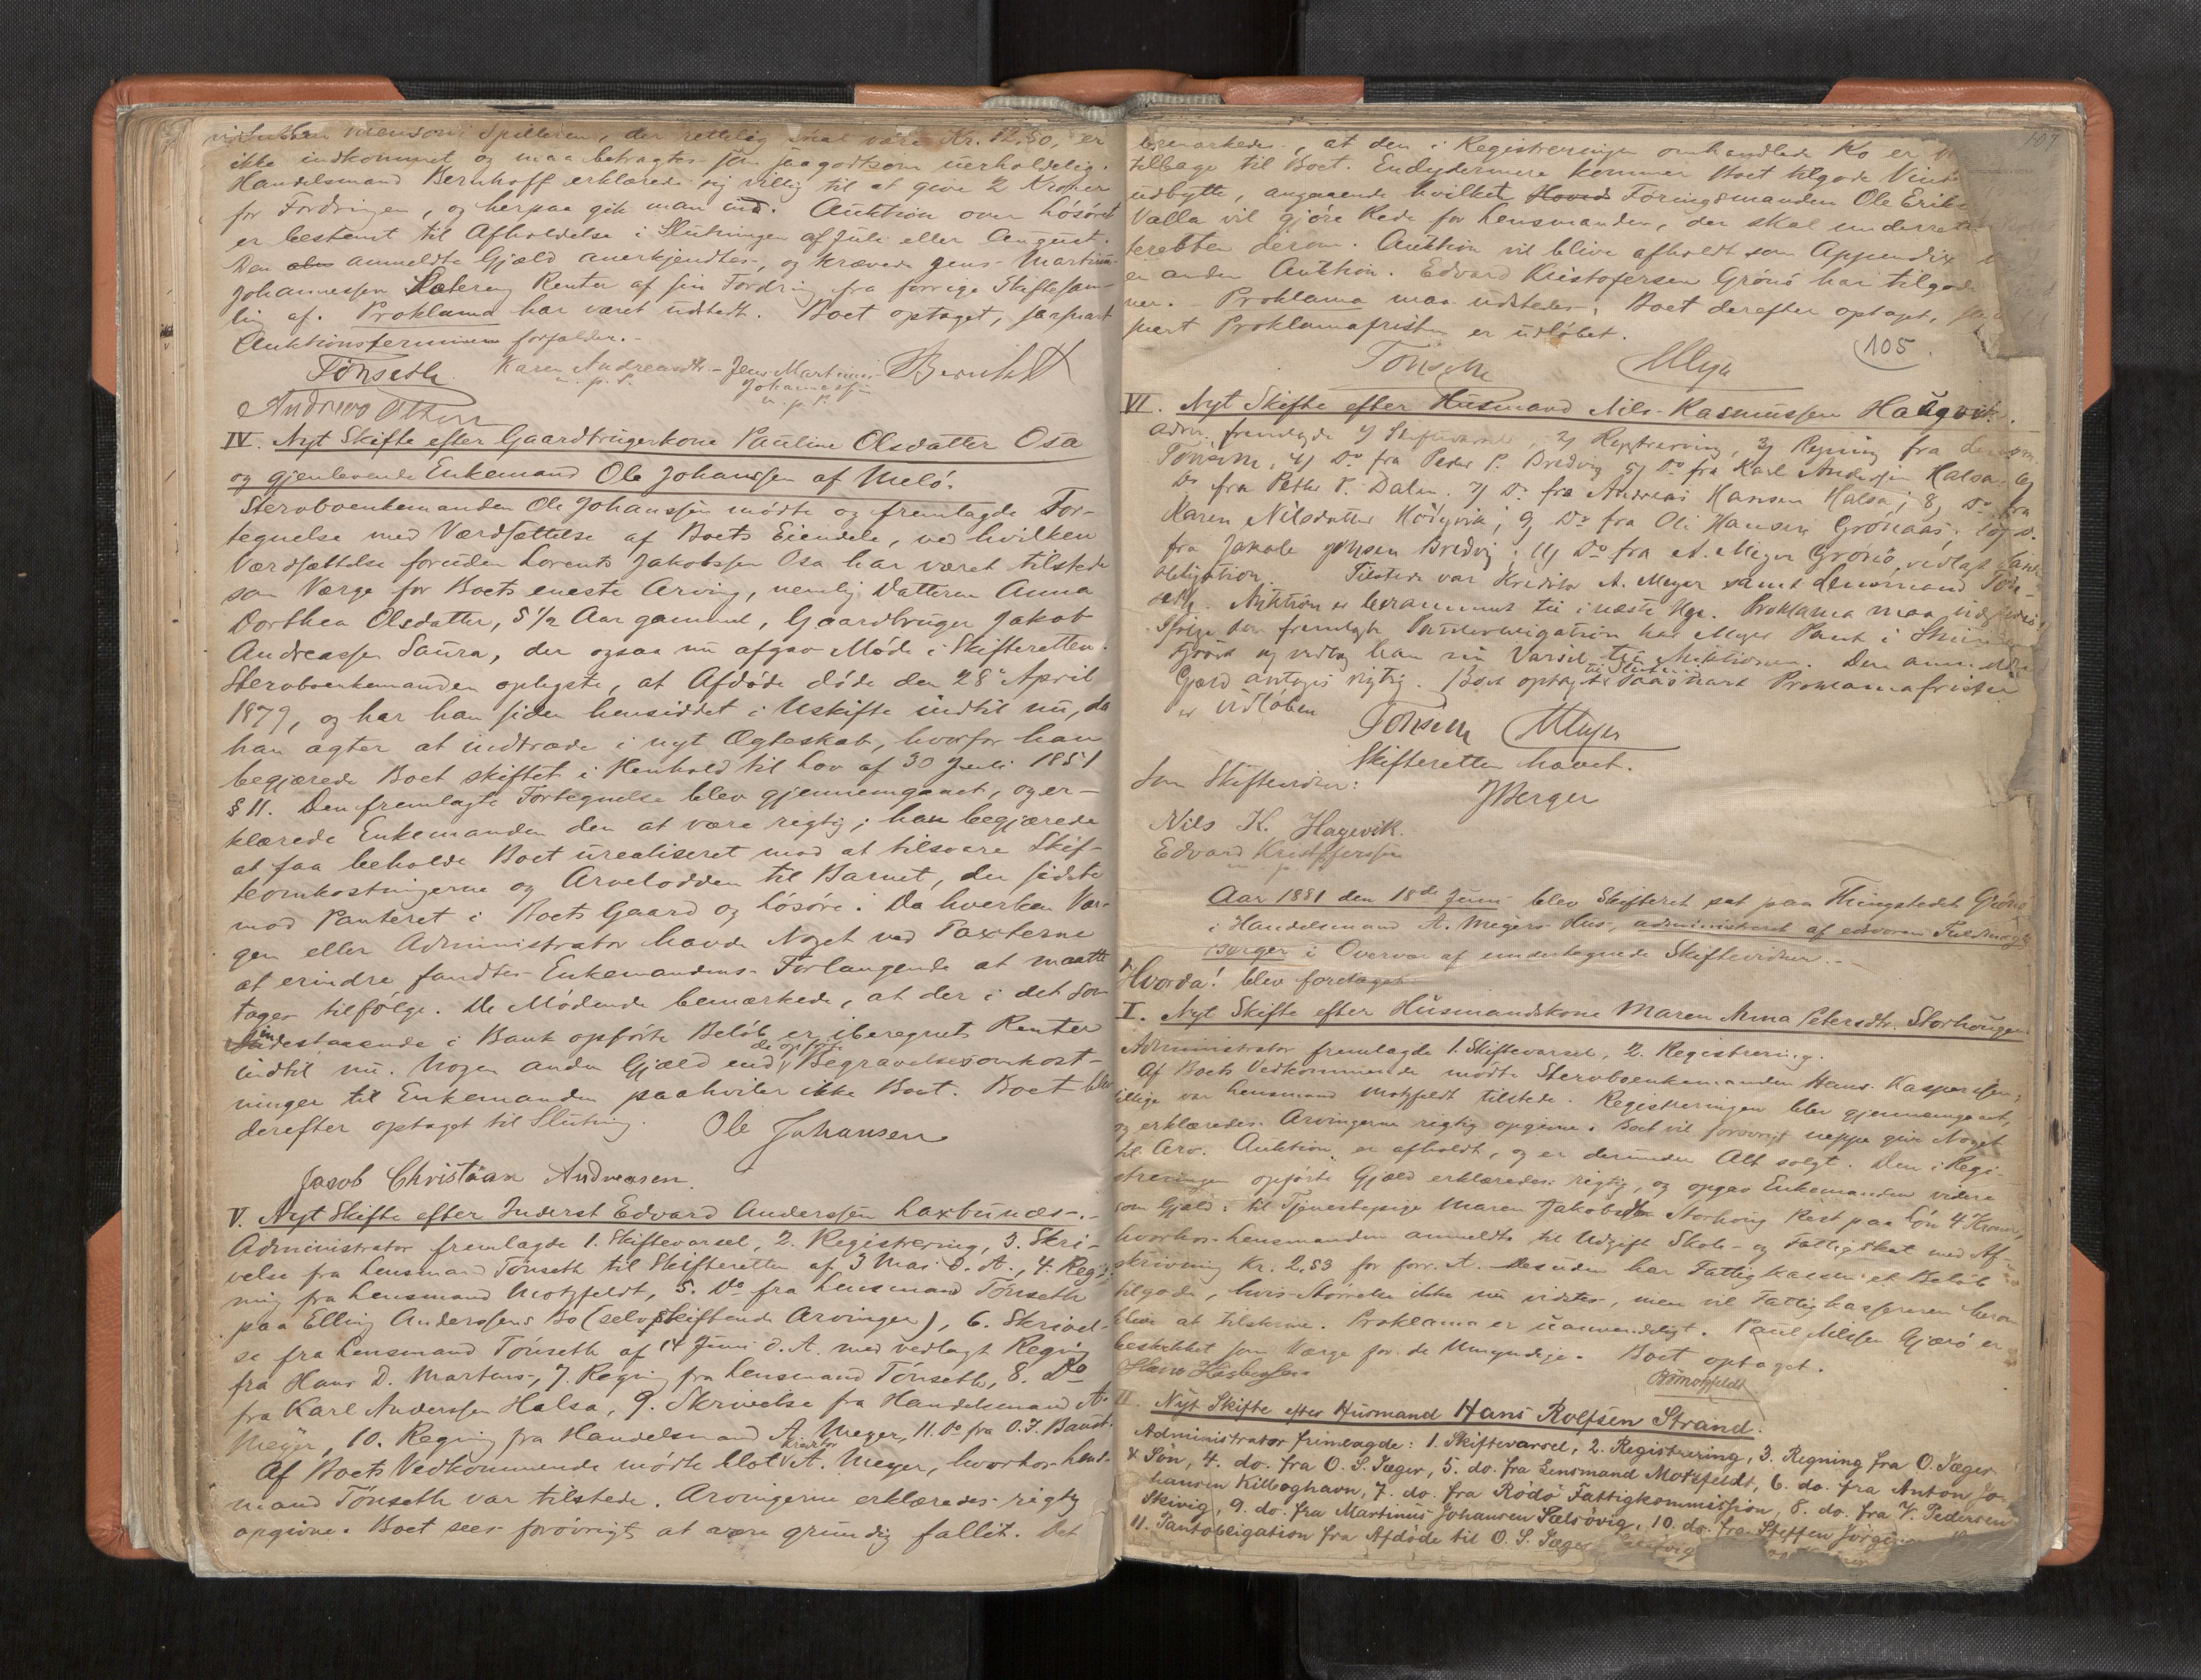 Spilleren, der rettelig skal være Kr. 12,50, er
ikke indkommet og maa betragtes som saagodtsom uerholdelig.
Handelsmand Bernhoff erklærede sig villig til at give 2 Kroner
for Fordringen, og herpaa gik man ind. Auktion over Løsøret
er bestemt til Afholdelse i Slutningen af Juli eller August.
Den anmeldte Gjæld anerkjendtes, og krævede Jens Martinus
Johannessen Renter af sin Fordring fra forrige Skiftesam-
ling af. Proklama har været udstedt. Boet optaget, saasnart
Auktionsterminen forfalder.-
Tönseth. Karen Andreasdtr.- Jens Martinus Bernhoff
m. p. P. Johannessen
m. p. P.
IV. Nyt Skifte efter Gaardbrugerkone Pauline Olsdatter Osa
og gjenlevende Enkemand Ole Johanssen af Melö.
Stervboenkemanden Ole Johanssen mødte og fremlagde For-
tegnelse med Værdsættelse af Boets Eiendele, ved hvilken
Værdsættelse foruden Lorents Jakobssen Osa har været tilstede
som Værge for Boets eneste Arving, nemlig Datteren Anna
Dorthea Olsdatter, 5 1/2 Aar gammel, Gaardbruger Jakob
Andreassen Saura, der ogsaa nu afgav Møde i Skifteretten.
Stervboenkemanden oplyste, at Afdøde døde den 28de April
1879, og har han siden hensiddet i Uskifte indtil nu, da
han agter at indtræde i nyt Ægteskab, hvorfor han
begjærede Boet skiftet i Henhold til Lov af 30 Juli 1851
§ 11. Den fremlagte Fortegnelse blev gjennemgaaet, og er-
klærede Enkemanden den at være rigtig; han begjærede
at faa beholde Boet urealiseret mod at tilsvare Skif-
teomkostningerne og Arvelodden til Barnet, den sidste
mod Panteret i Boets Gaard og Løsøre. Da hverken Vær-
gen eller Administrator havde Noget ved Taxterne
at erindre fandtes Enkemandens Forlangende at maatte
tages tilfølge. De Mødende bemærkede, at der i det som
indestaaende i Bank opførte Beløb er iberegnet Renter
indtil nu. Nogen anden Gjæld end de opførte Begravelsesomkost-
ninger til Enkemanden paahviler ikke Boet. Boet blev
derefter optaget til Slutning. Ole Johansen
Jacob Christian Andreasen.
V. Nyt Skifte efter Inderst Edvard Anderssen Laxbunæs.-
Administrator fremlagde 1. Skiftevarsel, 2. Registrering, 3. Skri-
velse fra Lensmand Tönseth til Skifteretten af 3 Mai d. A., 4. Reg-
ning fra Lensmand Motzfeldt, 5. Do fra Lensmand Tönseth
paa Elling Anderssens Bo (selvskiftende Arvinger), 6. Skrivel-
se fra Lensmand Tönseth af 14 Juni d. A. med vedlagt Regning
fra Hans D. Martens, 7. Regning fra Lensmand Tönseth, 8. Do
fra Karl Anderssen Halsa, 9. Skrivelse fra Handelsmand A.
Meyer, 10. Regning fra Handelsmand A. Meyer, 11. Do fra O. J.
Af Boets Vedkommende mødte blot Kreditor A. Meyer, hvorhos Lens-
mand Tönseth var tilstede. Arvingerne erklæredes rigtig
opgivne. Boet sees forøvrigt at være grundig fallit. Det
107
bemærkedes, at den i Registreringen omhandlede Ko er
tilbage til Boet. Endydermere kommer Boet tilgode
udbytte, angaaende hvilket Føringsmanden Ole
Valla vil gjøre Rede for Lensmanden, der skal underrette
retten derom. Auktion vil blive afholdt som Appendix
en anden Auktion. Edvard Kristofersen Grønø har tilgode
Proklama maa udstedes. Boet derefter optaget,
snart Proklamafristen er udløbet.
105
Tönseth AMeyer
VI. Nyt Skifte efter Husmand Nils Rasmussen Haugvik.
Adm. fremlagde 1) Skiftevarsel, 2) Registrering, 3) Regning fra Lensm.
Tönseth, 4) Do fra Peder P. Bredvig 5) Do fra Karl Andersen Halsa, 6)
Do fra Petter P. Dalen. 7) Do fra Andreas Hansen Halsa; 8) Do fra
Karen Nilsdatter 9) Do fra Ole Hansen Grönaas; 10) Do.
fra Jakob Jensen Bredvig; 11) Do fra A. Meyer Grønø, vedlagt
obligation. Tilstede var Kreditor A. Meyer samt Lensmand Tön-
seth. Auktion er berammet til i næste Uge. Proklama maa udstedes.
Ifølge den fremlagte Panteobligation har Meyer Pant i
og vedtog han sin Varsel til Auktionen. Den anmeldte
Gjæld antages rigtig. Boet optaget til Slutning saasnart Proklamafristen
er udløben
Tönseth AMeyer
Skifteretten hævet.
Som Skiftevidner: JBerger
Nils K. Hagevik.
Edvard Kristofferssen
m. p. P.
Aar 1881 den 18de Juni blev Skifteret sat paa Thingstedet Grønø
i Handelsmand A. Meyers Hus, administreret af edsvoren Fuldmægtig
Berger i Overvær af undertegnede Skiftevidner.-
Hvorda! blev foretaget
I. Nyt Skifte efter Husmandskone Maren Anna Petersdtr. Storhaugen
Administrator fremlagde 1. Skiftevarsel, 2. Registrering.
Af Boets Vedkommende mødte Stervboenkemanden Hans Kasperssen;
tillige var Lensmand Motzfeldt tilstede. Registreringen blev gjennemgaaet,
og erklæredes Arvingerne rigtig opgivne. Boet vil forøvrigt neppe give Noget
til Arv. Auktion er afholdt, og er derunder Alt solgt. Den i Regi-
streringen opførte Gjæld erklæredes rigtig, og opgav Enkemanden videre
som Gjæld: til Tjenestepige Maren Jakobsdtr Storhaug Rest paa Løn 4 Kroner,
hvorhos Lensmanden anmeldte til Udgift Skole- og Fattigskat med Af-
skrivning Kr. 2,53 for forr. A. Desuden har Fattigkassen et Beløb
tilgode, hvis Størrelse ikke nu vidstes, men vil Fattigkasseren herom
blive at tilskrive. Proklama er uanvendeligt. Paul Nilssen Gjærø er
beskikket som Værge for de Umyndige. Boet optaget.
Hans Kasperssen Motzfeldt
II. Nyt Skifte efter Husmand Hans Rolfsen Strand.
Administrator fremlagde: 1. Skiftevarsel, 2. Registrering, 3. Regning fra O. Jæger
& Søn, 4. do. fra O. S. Jæger, 5. do. fra Lensmand Motzfeldt, 6. do. fra Anton Jo-
hansen Kilboghavn, 7. do. fra Rødø Fattigkommission, 8. do. fra V. Pedersen
Skivig, 9. do. fra Martinus Johansen Sælsövig, 10. do. fra Steffen
11. Pantobligation fra Afdøde til O. S. Jæger